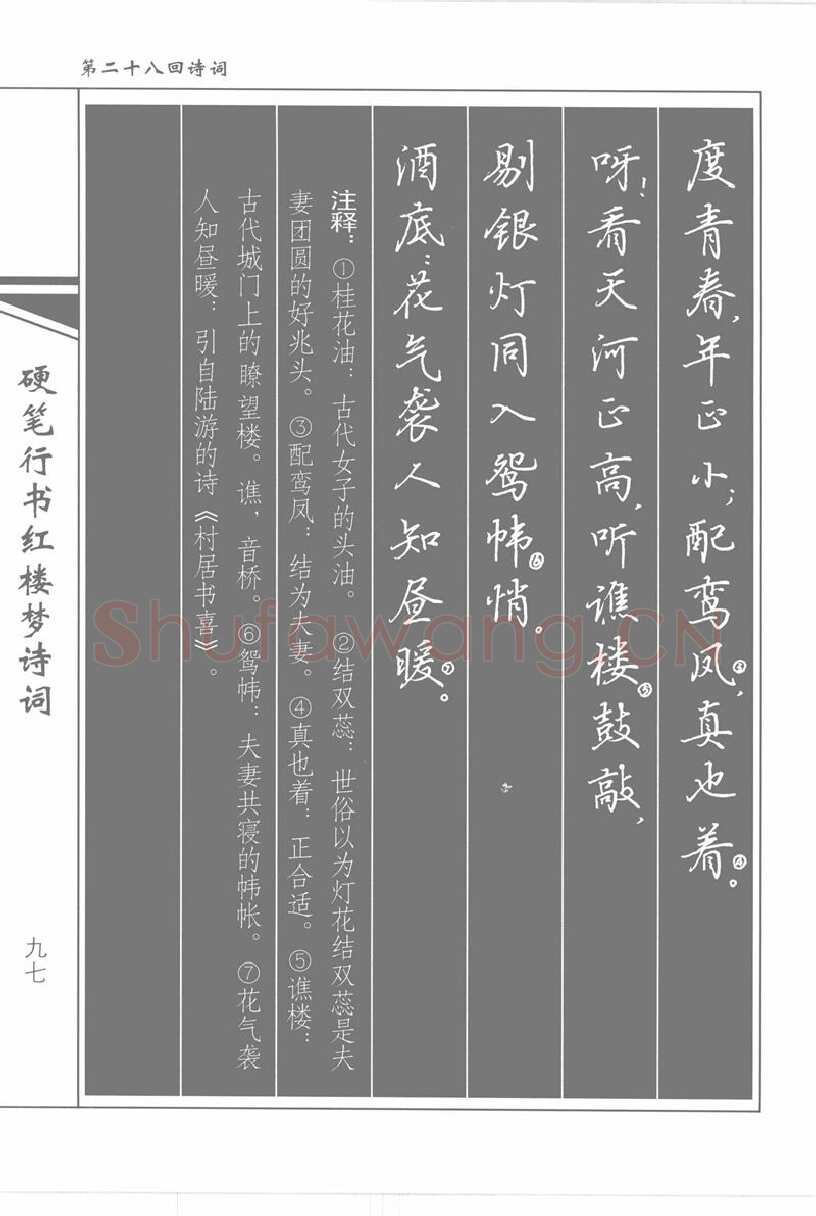 第二十八回诗词
度青春，年正小；配鸾凤③，真也着④。
呀！看天河正高，听谯楼⑤鼓敲，
剔银灯同入鸳帏⑥悄。
酒底：花气袭人知昼暖⑦。
注释：①桂花油：古代女子的头油。②结双蕊：世俗以为灯花结双蕊是夫
妻团圆的好兆头。③配鸾凤：结为夫妻。④真也着：正合适。⑤谯楼：
古代城门上的瞭望楼。谯，音桥。⑥鸳帏：夫妻共寝的帏帐。⑦花气袭
人知昼暖：引自陆游的诗《村居书喜》。
硬笔行书红楼梦诗词
九七
Shufawang.CN